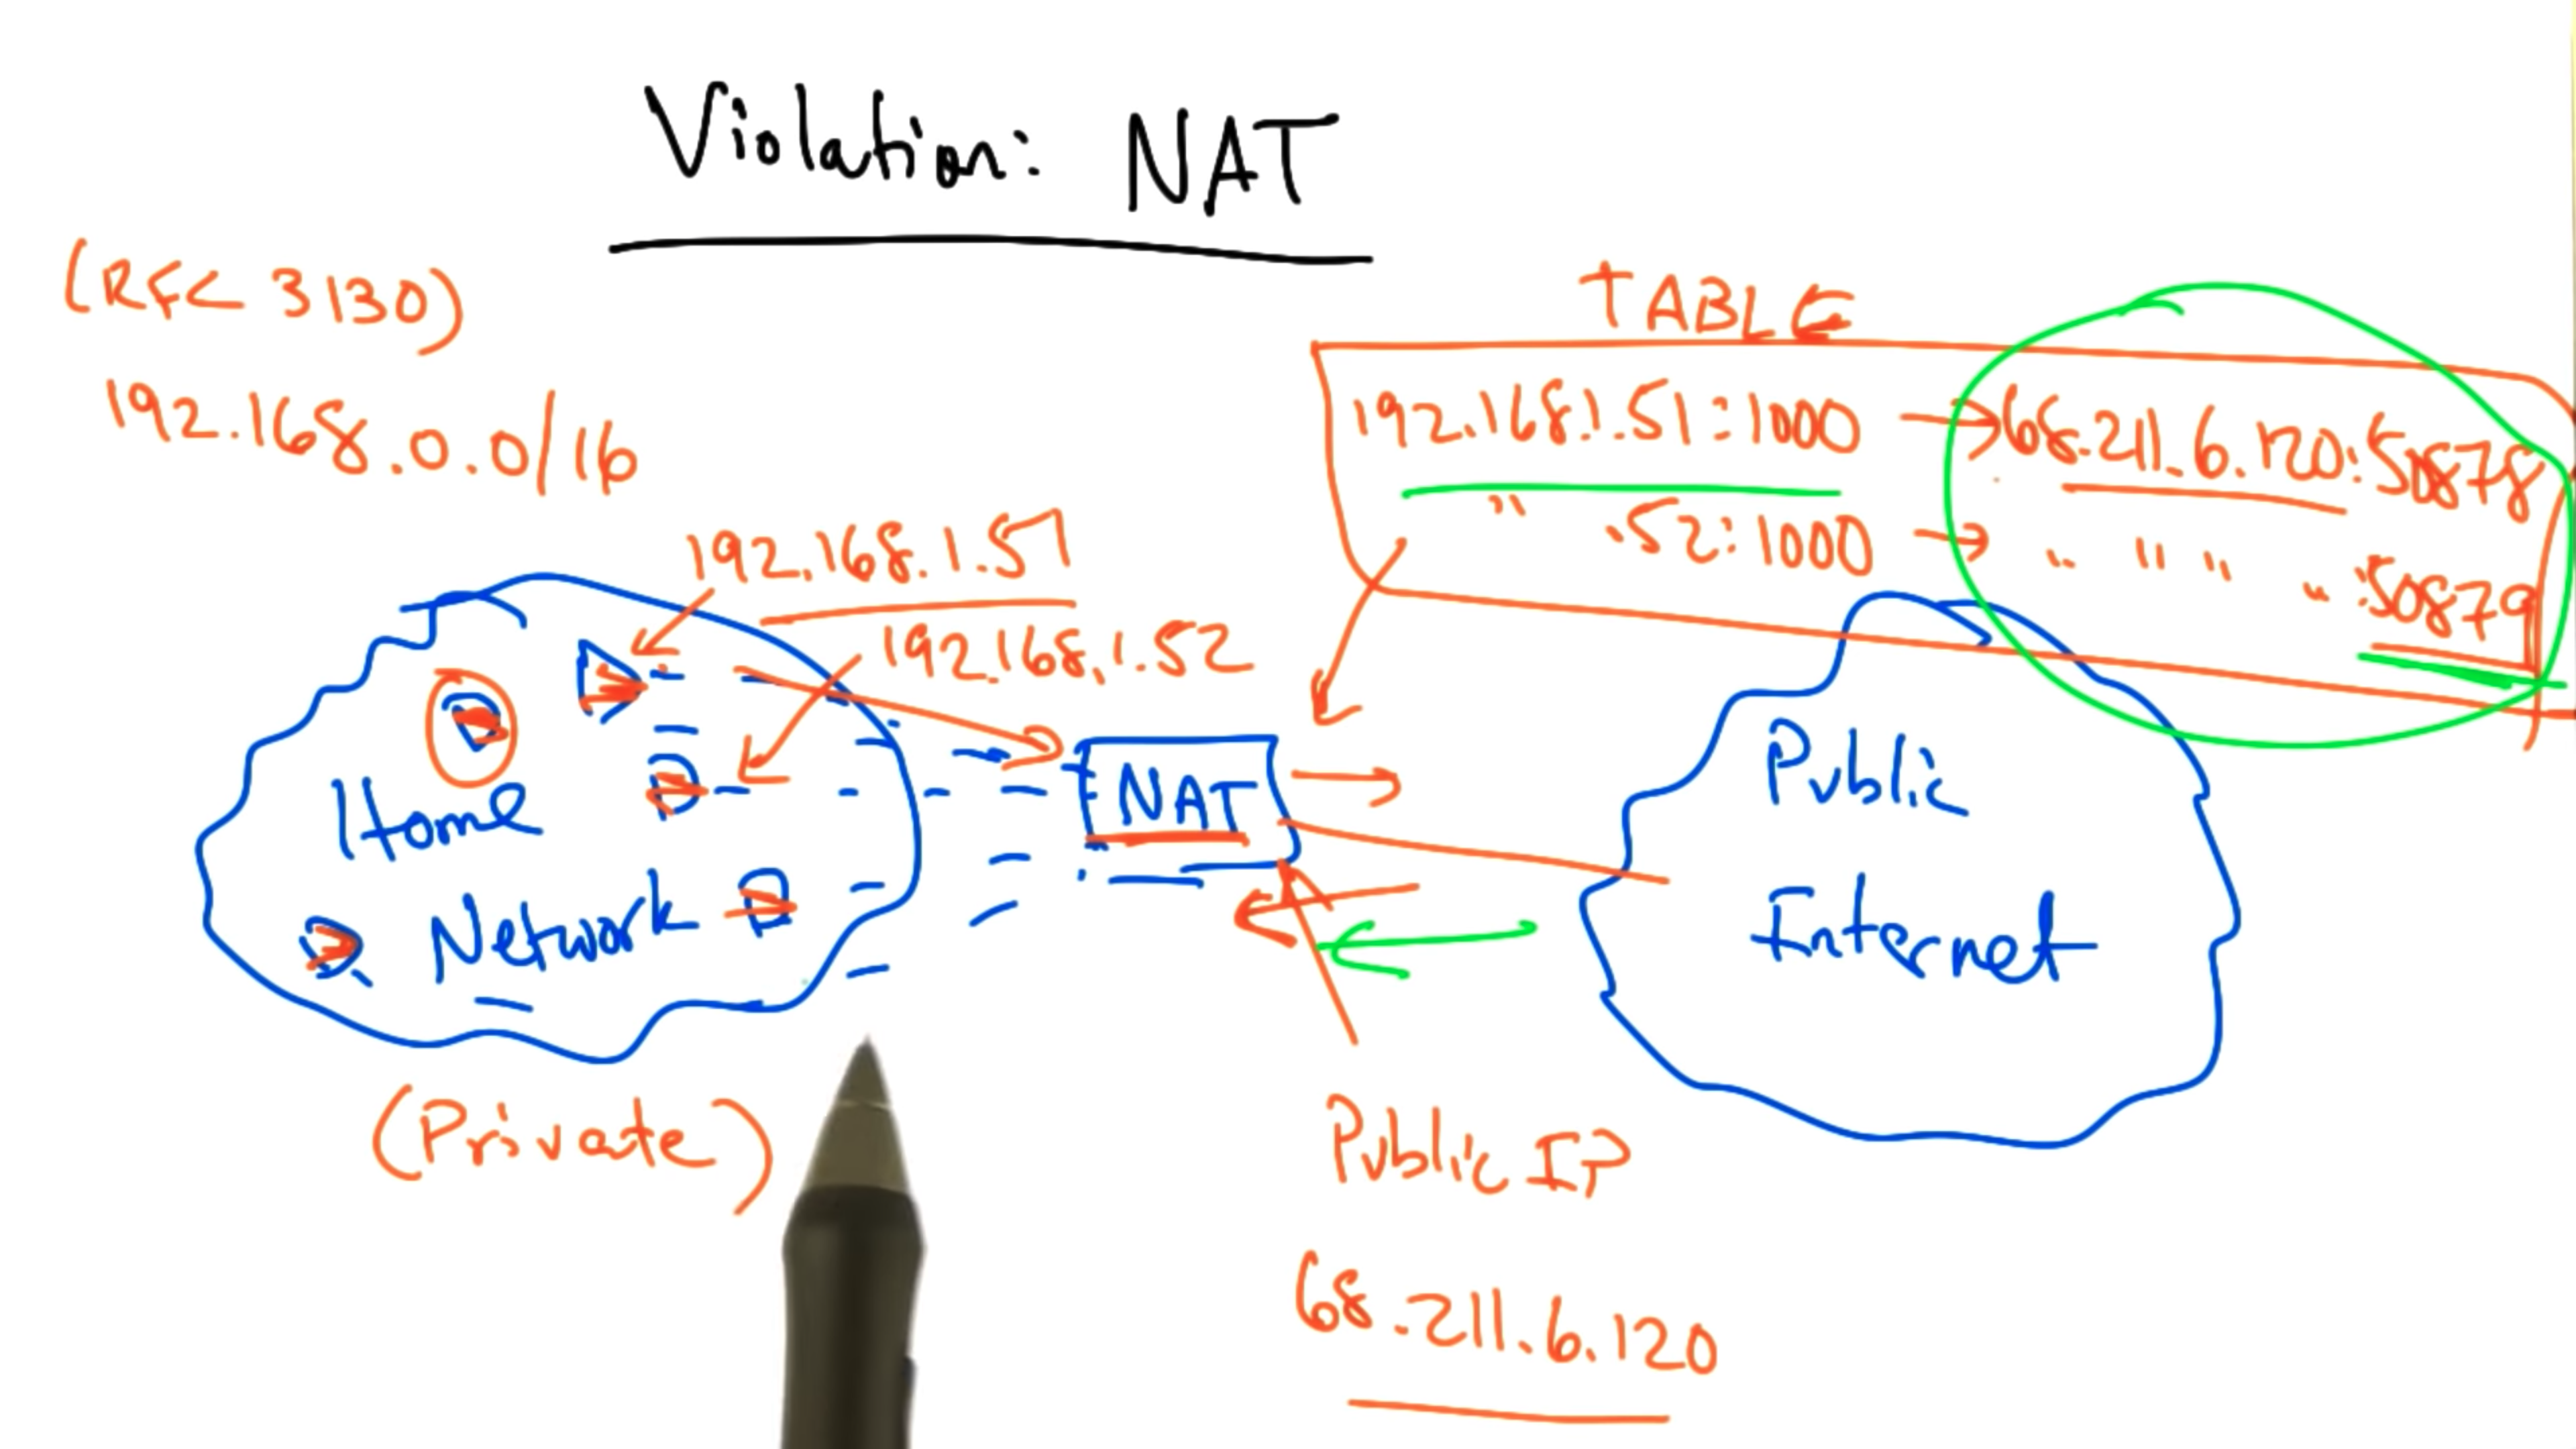 Violation: NAT
(RFC 3130)
192.168.0.0/16
TABLE
192.168.1.51:1000 → 68.211.6.120:50878
" .52:1000 → " " " " :50879
192.168.1.51
192.168.1.52
Home
Network
(Private)
NAT
Public
Internet
Public IP
68.211.6.120